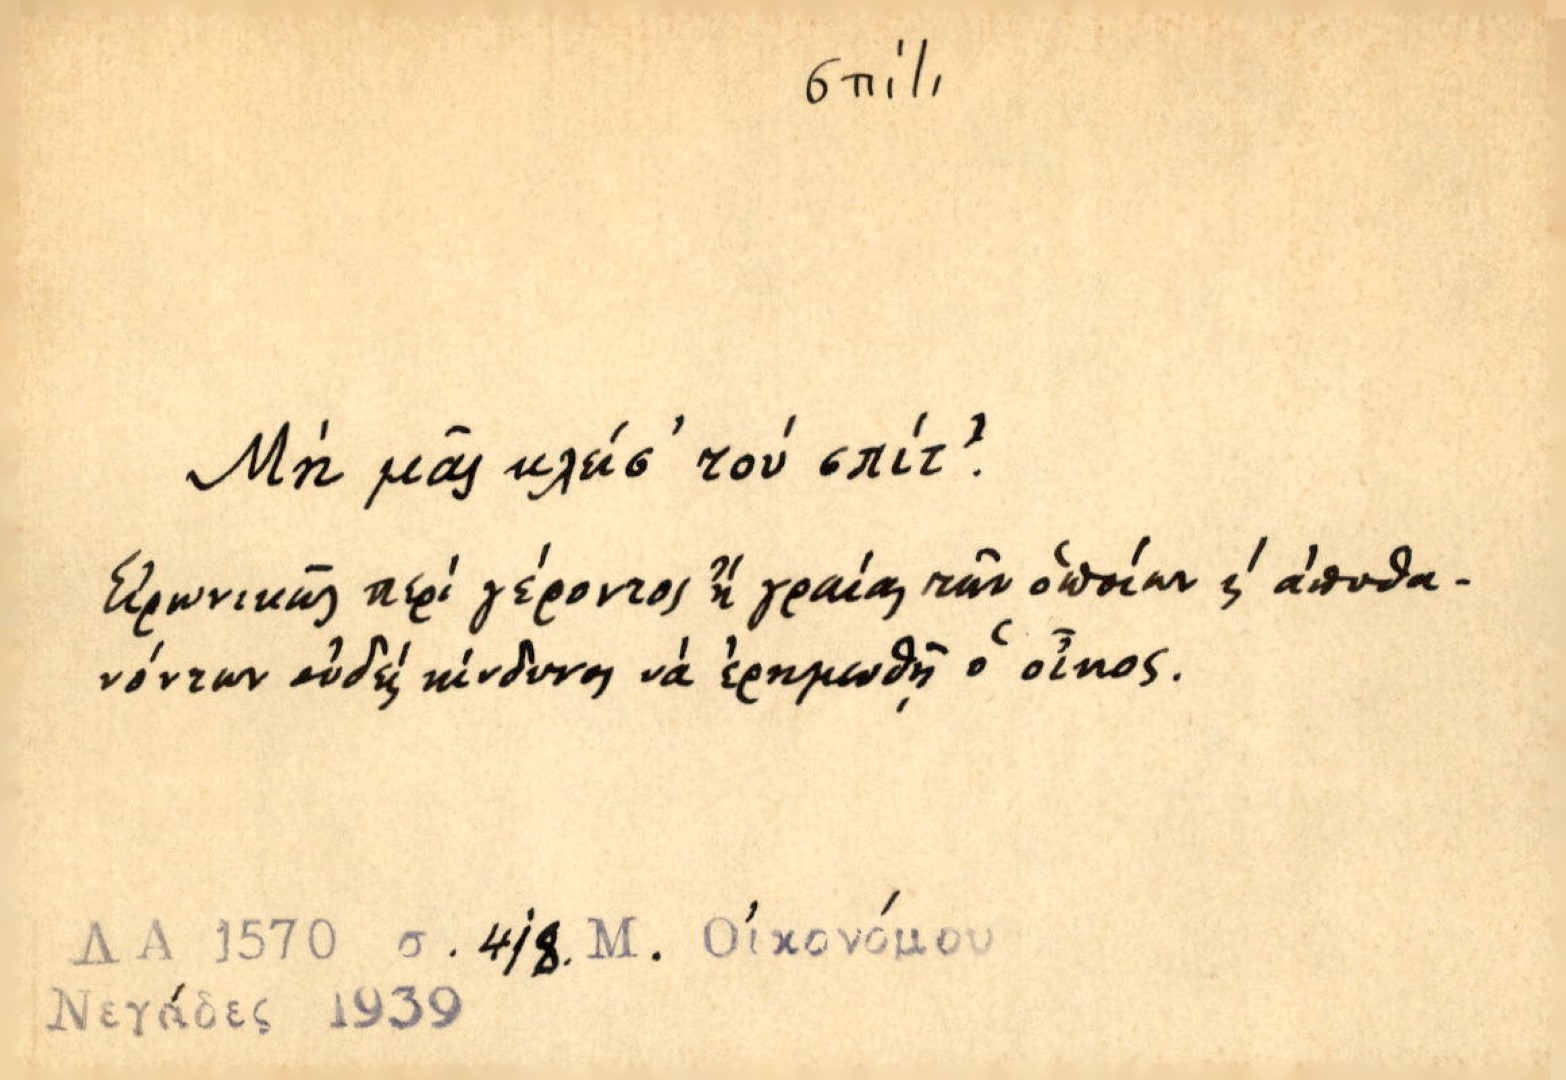 σπίτι
Μή μᾶς κλείσ' τού σπίτ'.
Εἰρωνικῶς περί γέροντος ἤ γραίας τῶν ὁποίων ἀποθα-
νόντων οὐδείς κίνδυνος νά ἐρημωθῇ ὁ οἶκος.
ΛΑ 1570 σ. Μ. Οἰκονόμου
Νεγάδες 1939